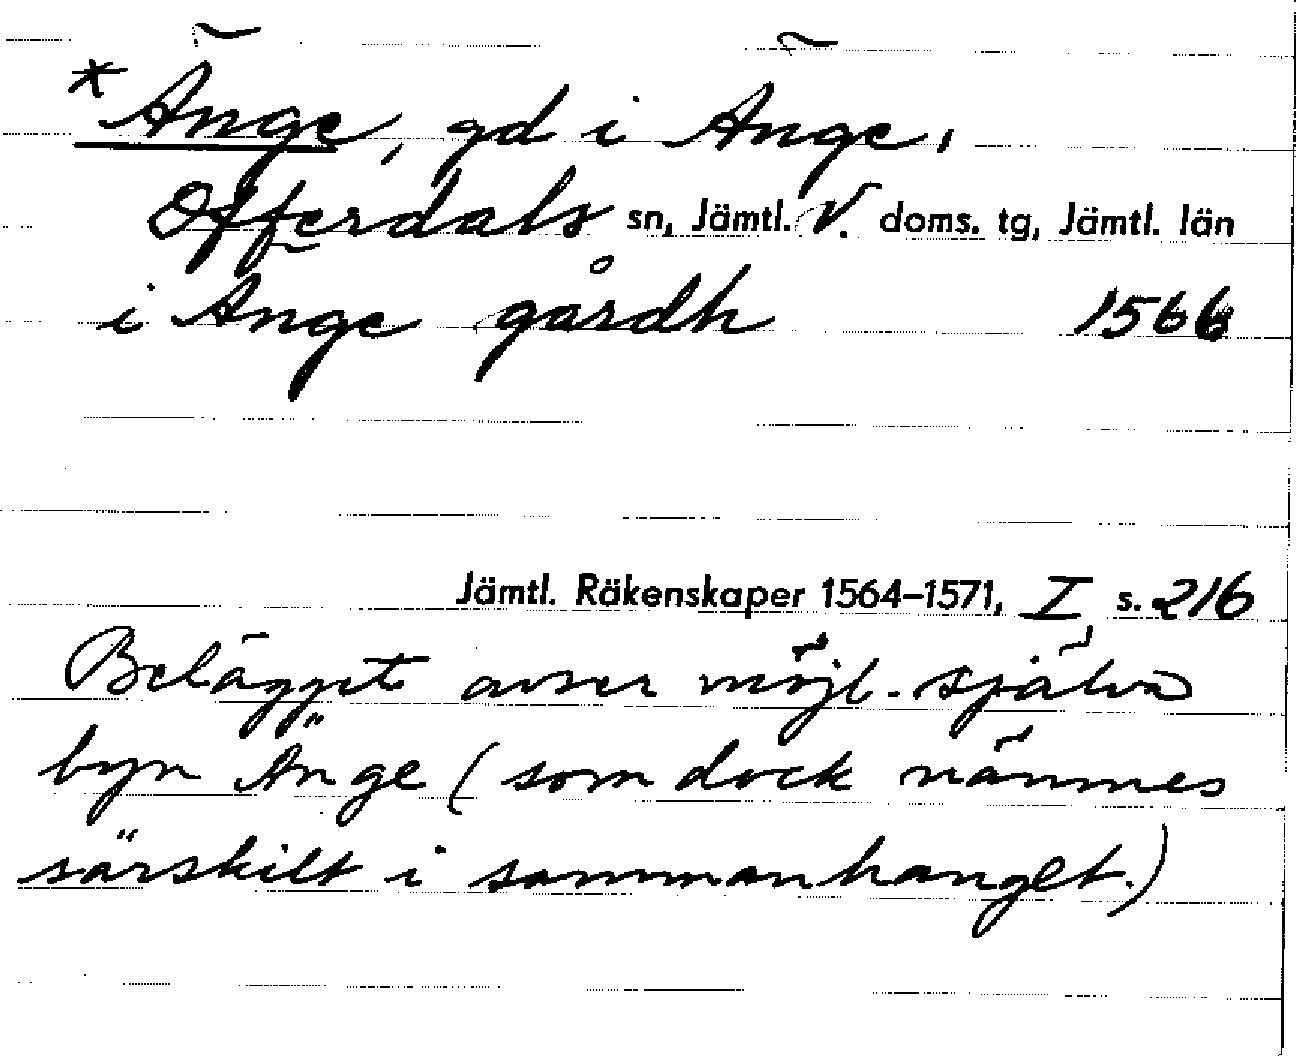 *Änge, gd i Änge,
Offerdals sn, Jämtl. V. doms. tg, Jämtl. län
i Ange gårdh 1566
Jämtl. Räkenskaper 1564–1571, I, s. 216
Belägget avser möjl. själva
byn Änge (som dock nämnes
särskilt i sammanhanget.)